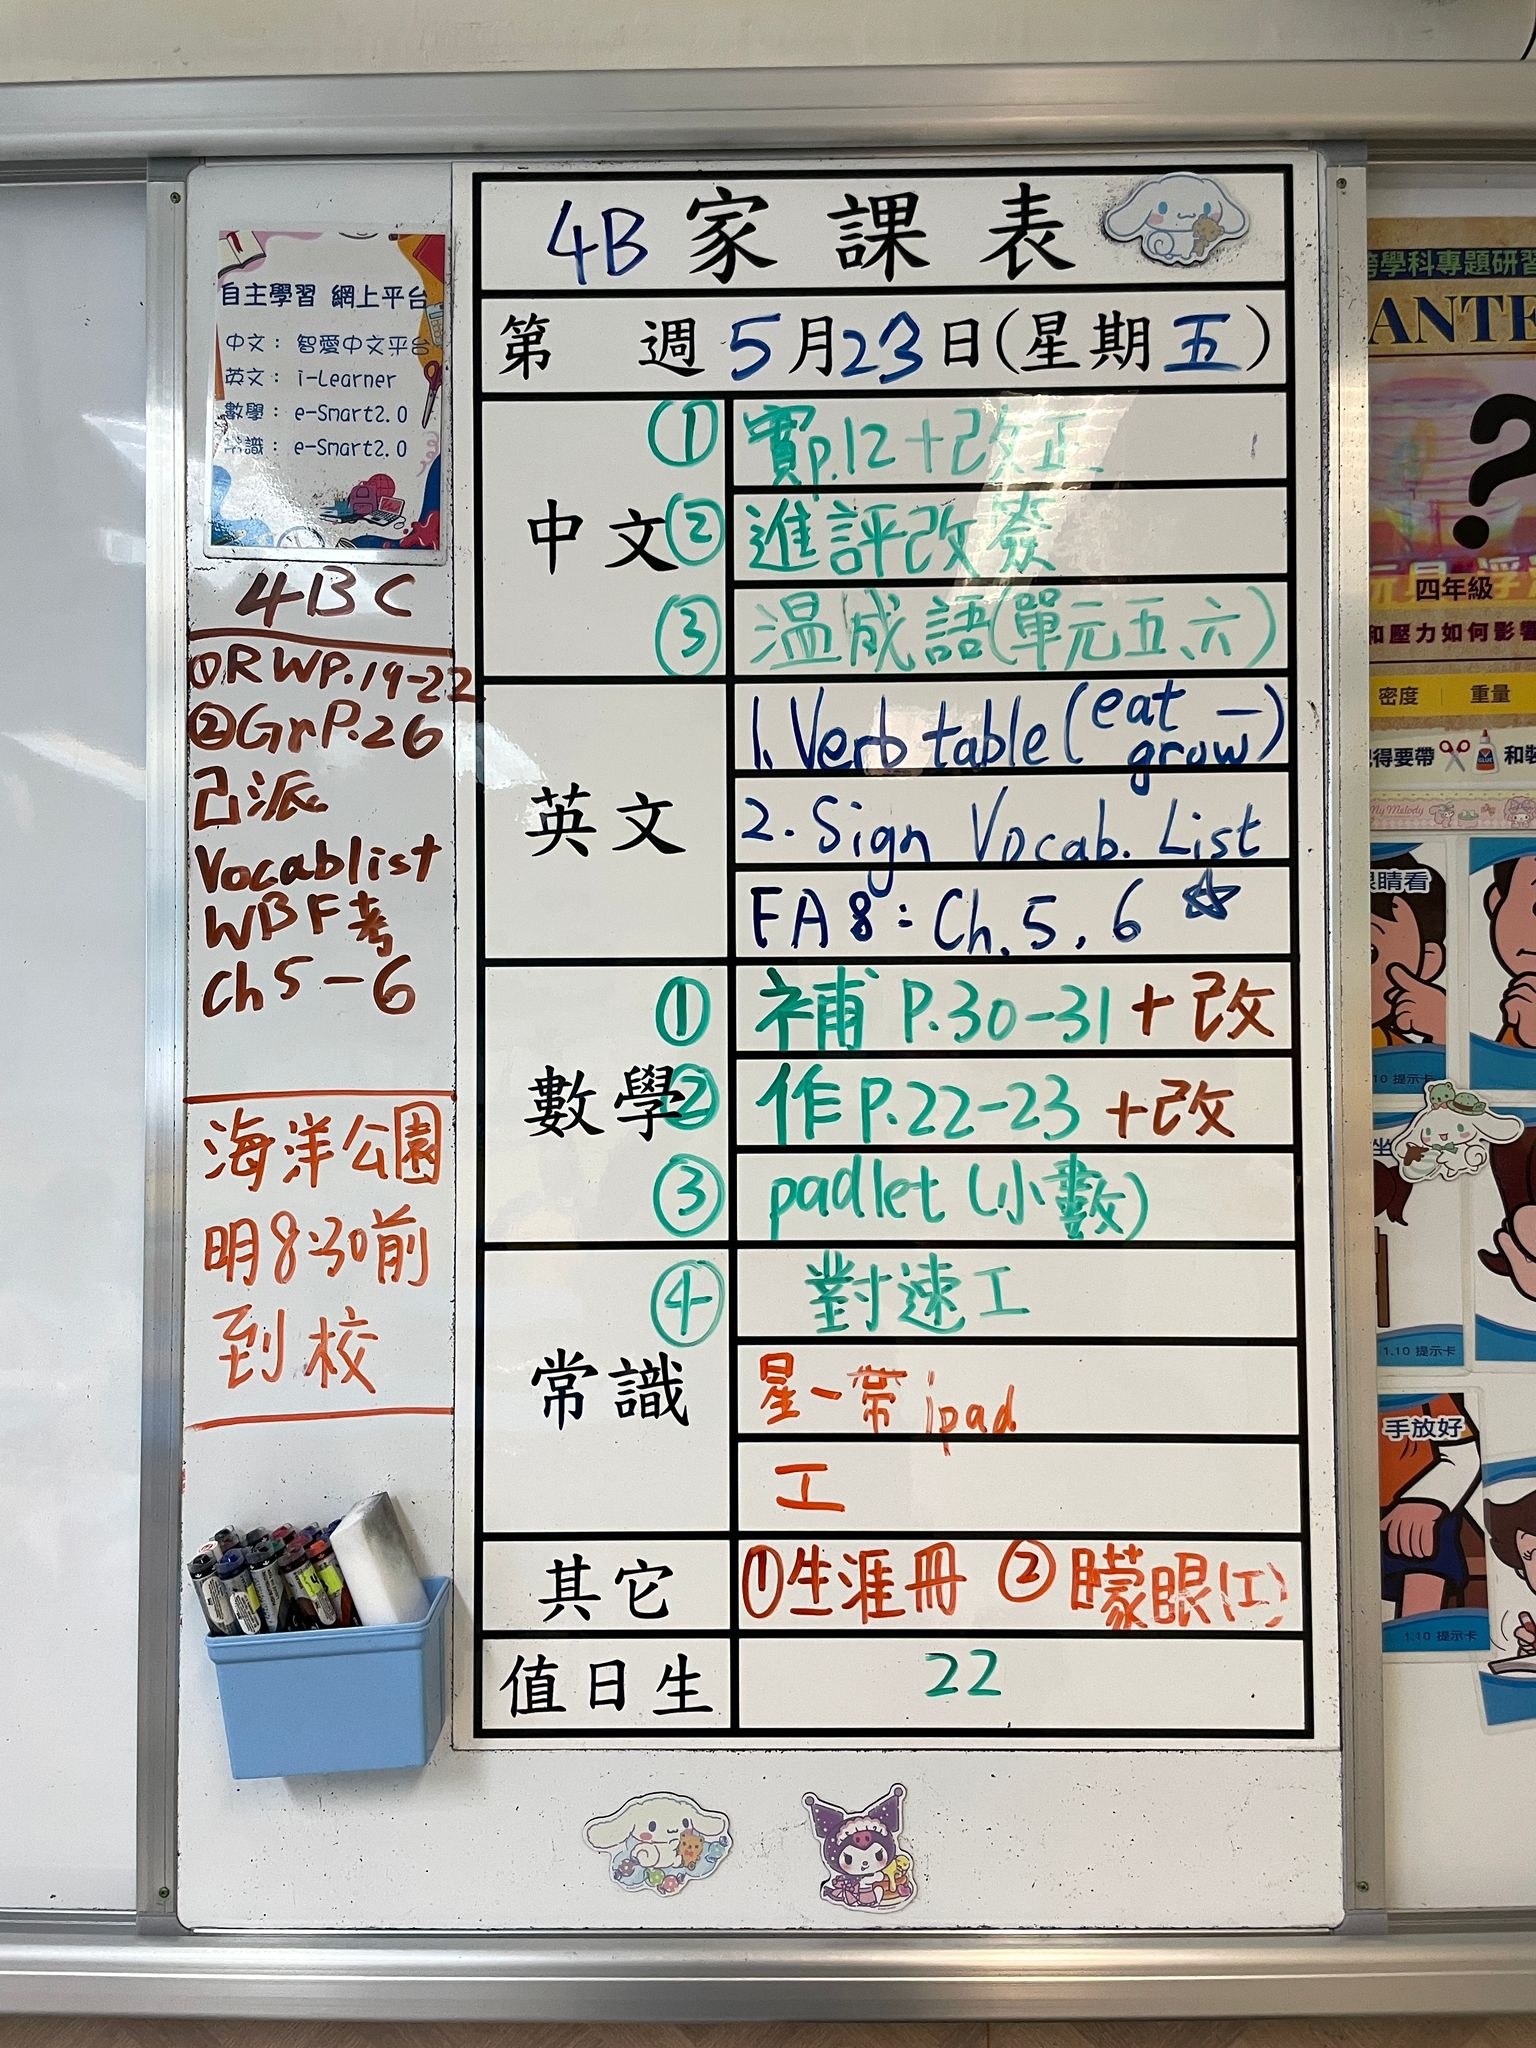 4B家課表
第 週5月23日(星期五)
中文
① 實p.12+改正
② 進評改簽
③ 温成語(單元五、六)
英文
1. Verb table (eat — grow)
2. Sign Vocab. List
FA8: Ch. 5, 6 ☆
數學
① 補 P.30-31 +改
② 作 P.22-23 +改
③ padlet (小數)
④ 對速工
常識
星一帶ipad
工
其它
①生涯冊 ②矇眼(工)
值日生
22
自主學習 網上平台
中文: 智愛中文平台
英文: i-Learner
數學: e-Smart2.0
常識: e-Smart2.0
4BC
①RWP.19-22
②GrP.26
己派
Vocablist
WBF考
Ch5-6
海洋公園
明8:30前
到校
跨學科專題研習
ANTE
?
四年級
和壓力如何影響
密度 重量
記得要帶 和裝
My Melody
眼睛看
1.10 提示卡
坐
1.10 提示卡
手放好
1.10 提示卡